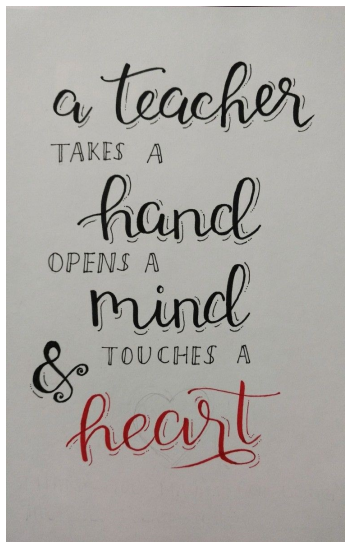 a teacher
TAKES A
hand
OPENS A
mind
& TOUCHES A
heart